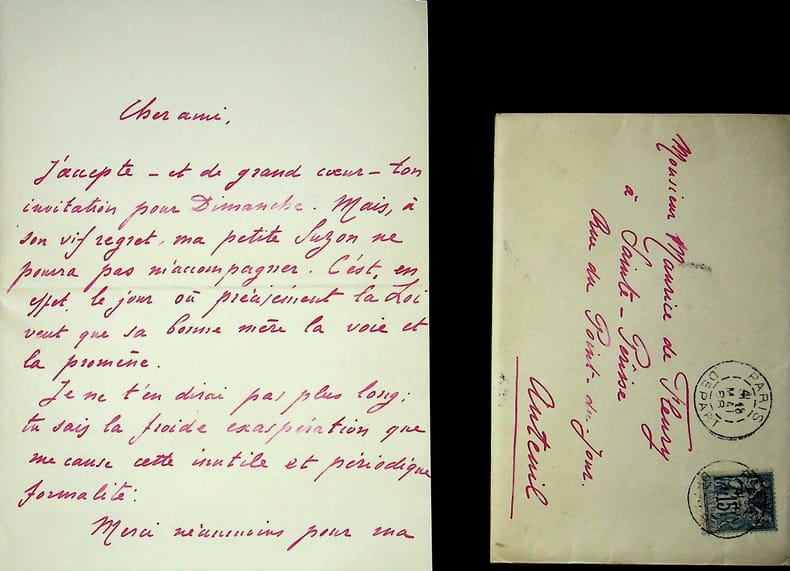 Cher ami,
J'accepte – et de grand cœur – ton
invitation pour Dimanche. Mais, à
son vif regret, ma petite Suzon ne
pourra pas m'accompagner. C'est, en
effet, le jour où précisément la Loi
veut que sa bonne mère la voie et
la promène.
Je ne t'en dirai pas plus long;
tu sais la froide exaspération que
me cause cette inutile et périodique
formalité.
Merci néanmoins pour ma
Monsieur Maurice de Fleury
à Sainte-Périne
Rue du Point-du-Jour.
Auteuil
PARIS
MAI
88
DEPART
15